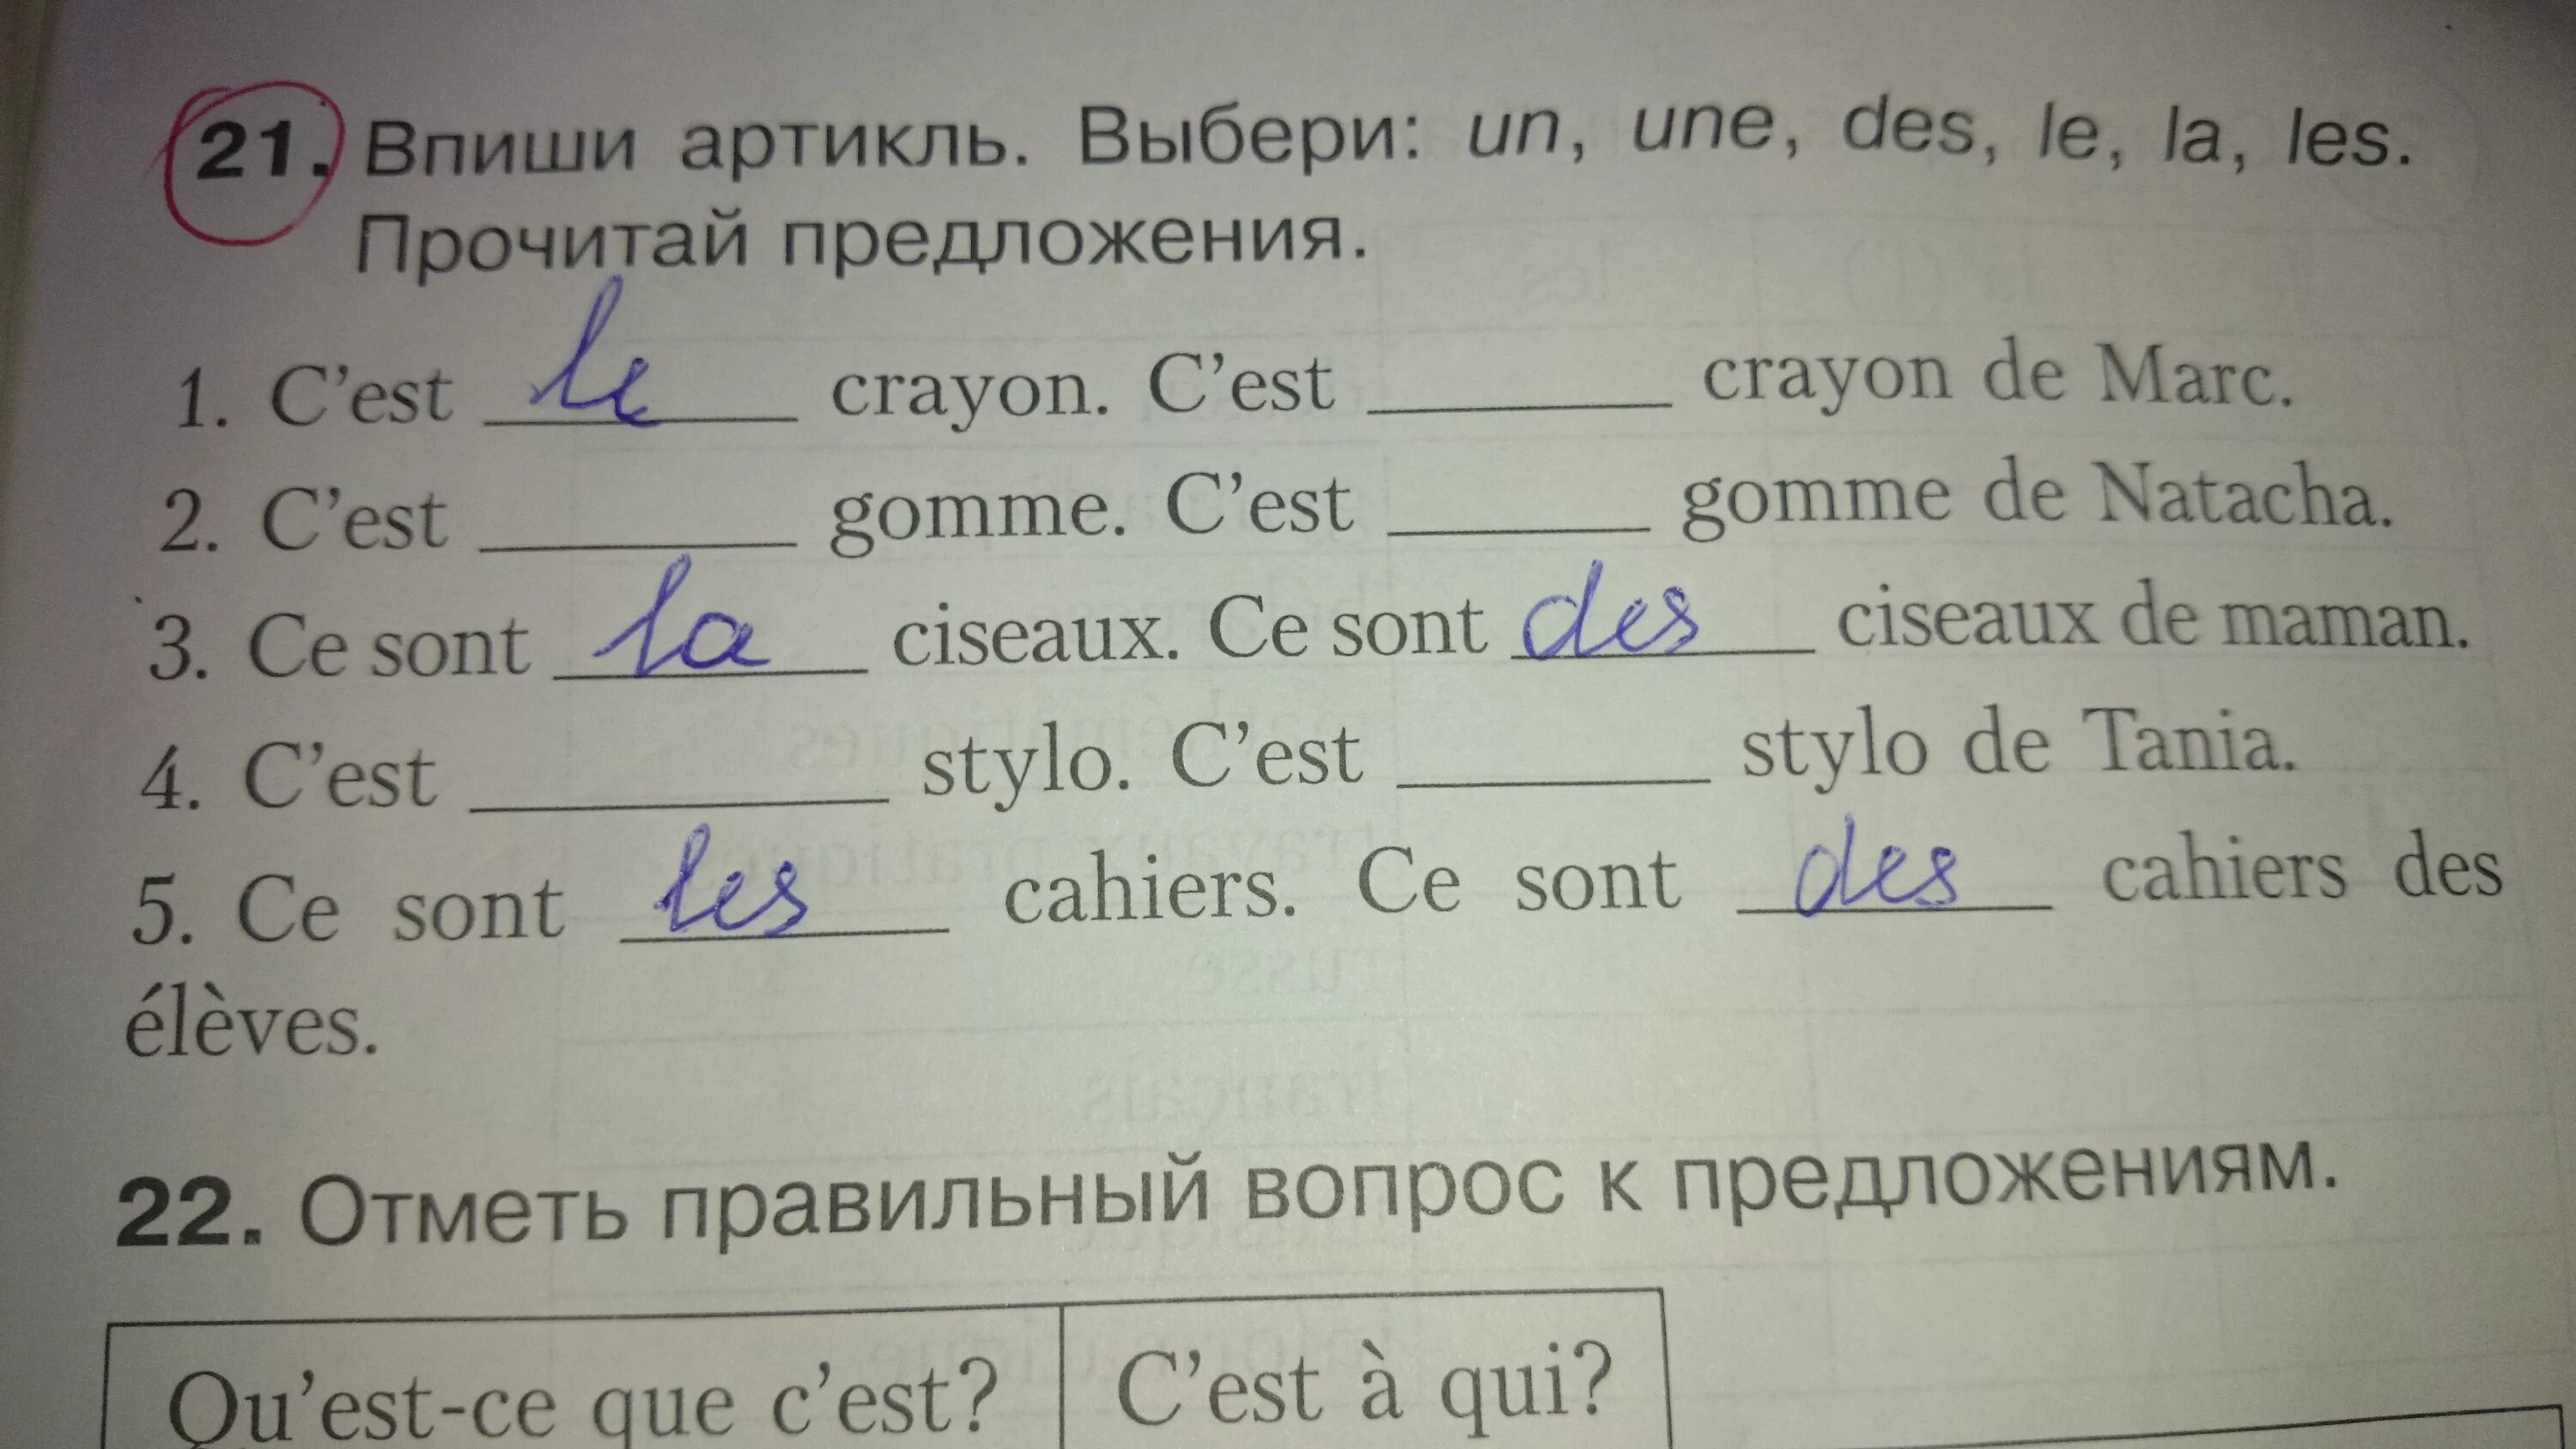 21. Впиши артикль. Выбери: un, une, des, le, la, les.
Прочитай предложения.
1. C'est le crayon. C'est ______ crayon de Marc.
2. C'est ______ gomme. C'est ______ gomme de Natacha.
3. Ce sont la ciseaux. Ce sont des ciseaux de maman.
4. C'est ______ stylo. C'est ______ stylo de Tania.
5. Ce sont les cahiers. Ce sont des cahiers des
élèves.
22. Отметь правильный вопрос к предложениям.
Qu'est-ce que c'est? C'est à qui?